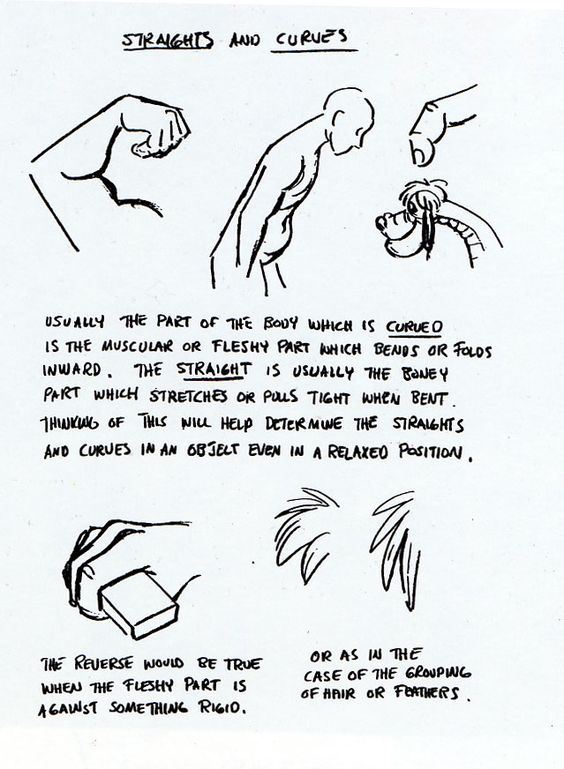 STRAIGHTS AND CURVES
USUALLY THE PART OF THE BODY WHICH IS CURVED
IS THE MUSCULAR OR FLESHY PART WHICH BENDS OR FOLDS
INWARD. THE STRAIGHT IS USUALLY THE BONEY
PART WHICH STRETCHES OR PULLS TIGHT WHEN BENT.
THINKING OF THIS WILL HELP DETERMINE THE STRAIGHTS
AND CURVES IN AN OBJECT EVEN IN A RELAXED POSITION.
THE REVERSE WOULD BE TRUE
WHEN THE FLESHY PART IS
AGAINST SOMETHING RIGID.
OR AS IN THE
CASE OF THE GROUPING
OF HAIR OR FEATHERS.